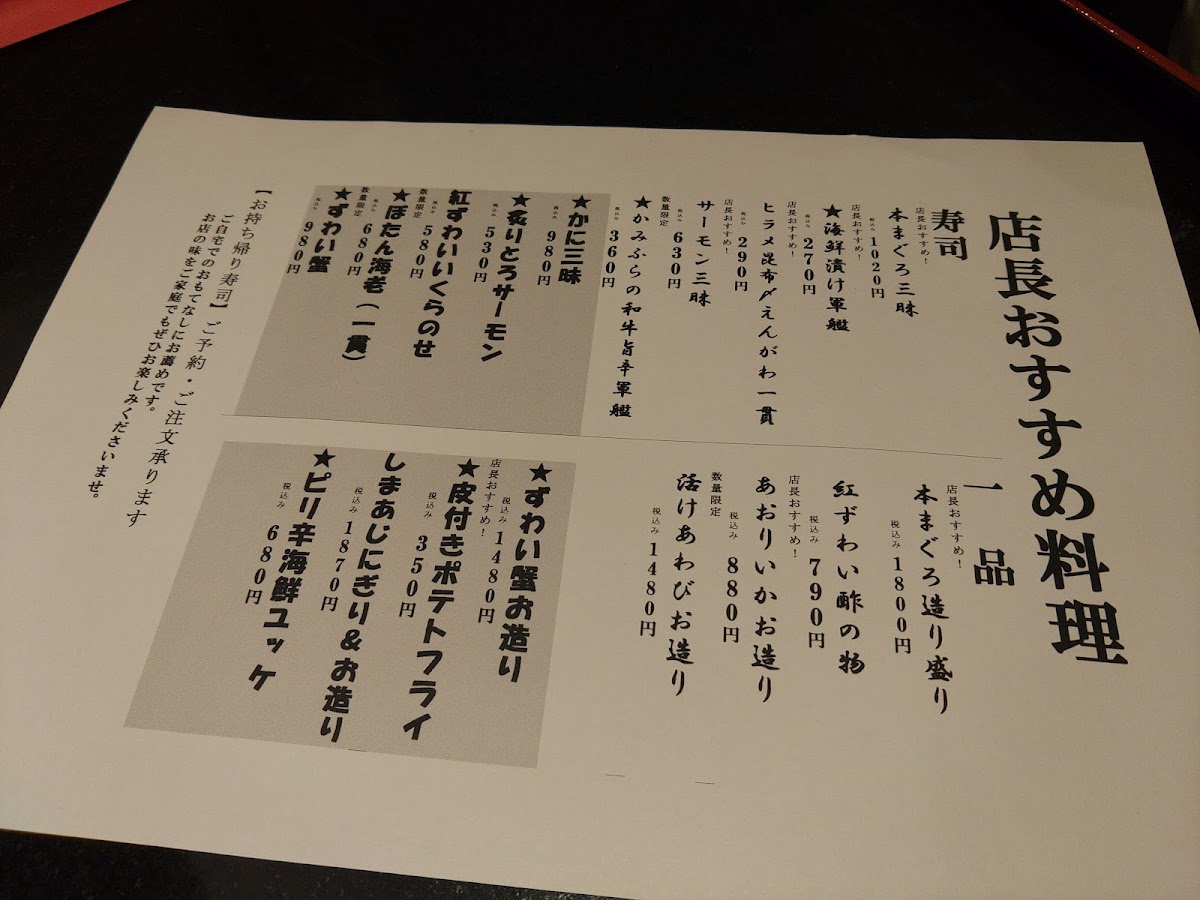 店長おすすめ料理
寿司
店長おすすめ！
本まぐろ三昧
税込み1020円
店長おすすめ！
★海鮮漬け軍艦
税込み270円
店長おすすめ！
ヒラメ昆布〆えんがわ一貫
税込み290円
店長おすすめ！
サーモン三昧
税込み630円
数量限定
★かみふらの和牛旨辛軍艦
税込み360円
★かに三昧
税込み980円
★炙りとろサーモン
税込み530円
紅ずわいいくらのせ
税込み580円
数量限定
★ぼたん海老（一貫）
税込み680円
数量限定
★ずわい蟹
税込み980円
一品
店長おすすめ！
本まぐろ造り盛り
税込み1800円
紅ずわい酢の物
税込み790円
店長おすすめ！
あおりいかお造り
税込み880円
数量限定
活けあわびお造り
税込み1480円
★ずわい蟹お造り
税込み1480円
店長おすすめ！
★皮付きポテトフライ
税込み350円
しまあじにぎり＆お造り
税込み1870円
★ピリ辛海鮮ユッケ
税込み680円
【お持ち帰り寿司】ご予約・ご注文承ります
ご自宅でのおもてなしにお薦めです。
お店の味をご家庭でもぜひお楽しみくださいませ。